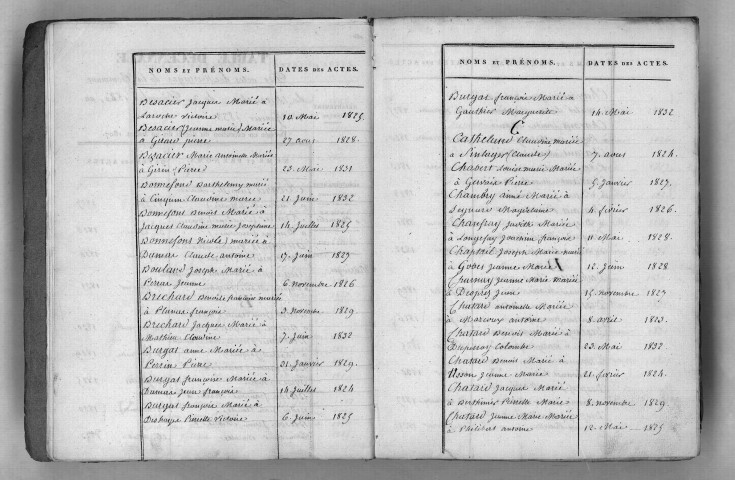 NOMS ET PRÉNOMS. DATES DES ACTES.
Besacier Jacques Marié à
Laroche Victoire 10 Mai 1825.
Besacier (Jeanne marie) Mariée
à Gitard pierre 27 aout 1828.
Besacier Marie antoinette Mariée
à Gerin Pierre 23 Mai 1831
Bonnefond Barthelemy marié
à Claudine marie 21 Juin 1832
Bonnefont Benoit Marié à
Jacques Claudine marie Josephine 14 Juillet 1825
Bonnefons Nicole) mariée à
Dumas Claude antoine 17 Juin 1829
Boulard Joseph Marié à
Perras Jeanne 6 novembre 1826
Brechard Benoite françoise mariée
à Planus françois 3 novembre 1829
Brechard Jacques Marié à
Mathieu Claudine 7 Juin 1832
Burgat anne Mariée à
Perrin Pierre 31 Janvier 1829.
Burgat françoise Mariée à
Dumas Jean françois 14 Juillet 1824
Burgat françois Marié à
Deshayes Pierrette Victoire 6 Juin 1825
NOMS ET PRÉNOMS. DATES DES ACTES.
Burgat françois Marié à
Gauthier Marguerite 14 Mai 1832
C.
Cathelund Claudine mariée
à (Claude) 7 aout 1824.
Chabert Louis marie Marié
à Gervais Pierre 5 Janvier 1827.
Chambry anne Mariée à
Magdelaine 4 fevrier 1826.
Chanfray Judith Mariée
à Joachim françois 11 Mai 1828.
Chaptail Joseph Marie marié
à Gobet Jeanne Marie 12 Juin 1828
Charnay Jeanne Marie mariée
à Desprès Jean 15 novembre 1827
Chatard antoinette Mariée
à Marcoux antoine 8 avril 1823.
Chatard Benoit Marié à
Dupissay Colombe 23 Mai 1832
Chatard Benoit Marié à
Jeanne Marie 21 fevrier 1824.
Chatard Jacques Marié
à Berthinier Pierrette Marie 8 novembre 1829
Chatard Jeanne Marie Mariée
à Philibert antoine 12 Mai 1825